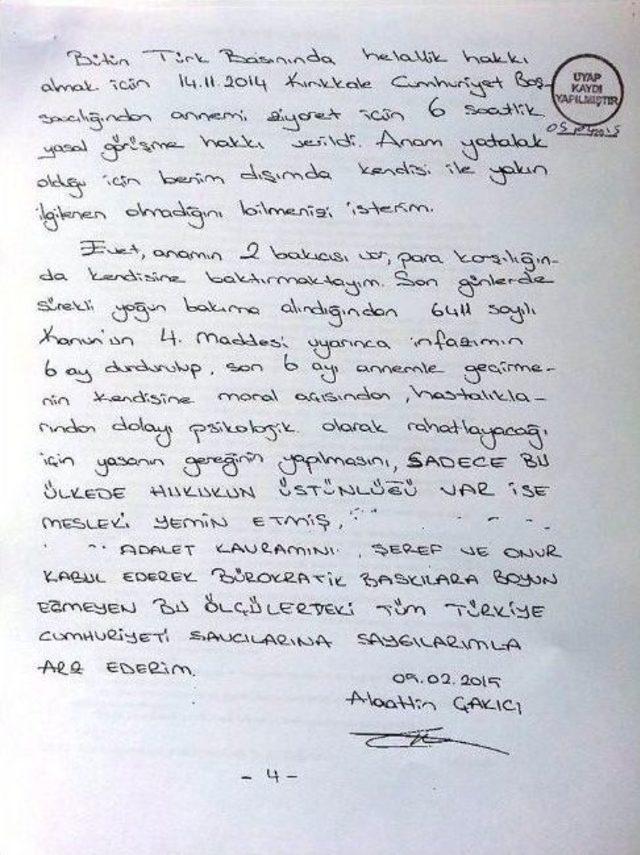 Bütün Türk Basınında helallik hakkı
almak için 14.11.2014 Kırıkkale Cumhuriyet Baş-
savcılığından annemi ziyaret için 6 saatlik
yasal görüşme hakkı verildi. Anam yatalak
olduğu için benim dışımda kendisi ile yakın
ilgilenen olmadığını bilmenizi isterim.
UYAP
KAYDI
YAPILMIŞTIR
Evet, anamın 2 bakıcısı var, para karşılığın-
da kendisine baktırmaktayım. Son günlerde
sürekli yoğun bakıma alındığından 6411 sayılı
Kanun'un 4. Maddesi uyarınca infazımın
6 ay durdurulup, son 6 ayı annemle geçirme-
nin kendisine moral açısından, hastalıkla-
rından dolayı psikolojik olarak rahatlayacağı
için yasanın gereğinin yapılmasını, SADECE BU
ÜLKEDE HUKUKUN ÜSTÜNLÜĞÜ VAR İSE
MESLEKİ YEMİN ETMİŞ,
ADALET KAVRAMINI, ŞEREF VE ONUR
KABUL EDEREK BÜROKRATİK BASKILARA BOYUN
EĞMEYEN BU ÖLÇÜLERDEKİ TÜM TÜRKİYE
CUMHURİYETİ SAVCILARINA SAYGILARIMLA
ARZ EDERİM.
09.02.2015
Alaattin ÇAKICI
- 4 -